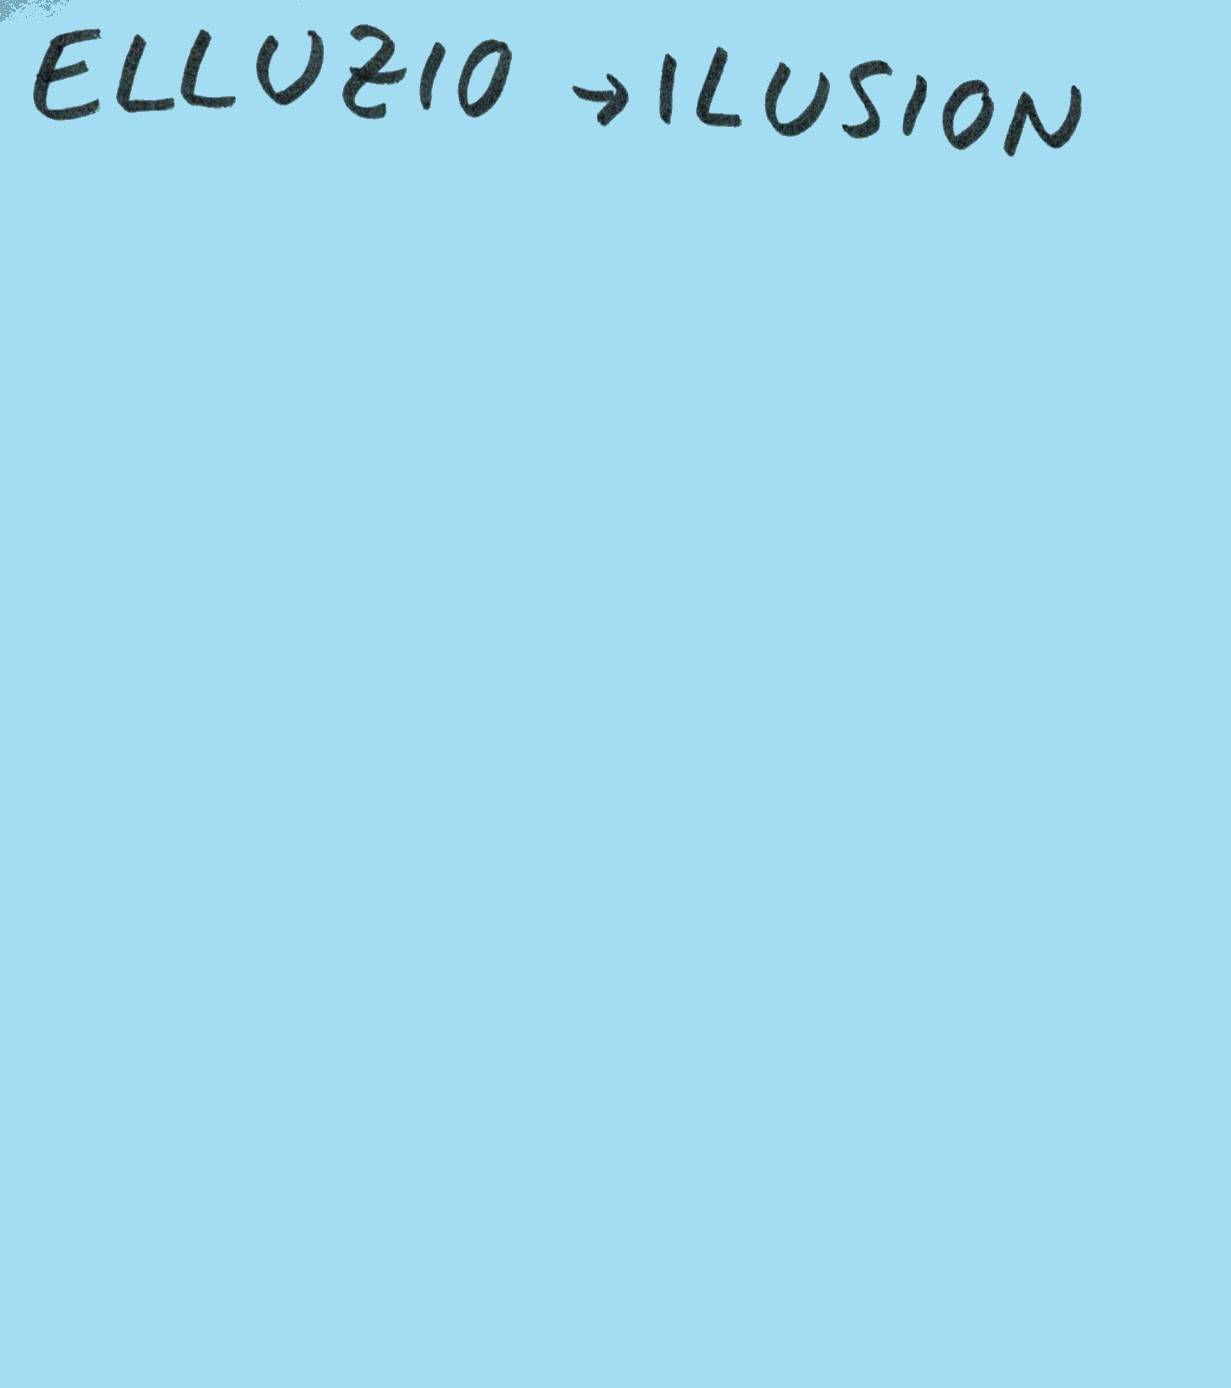 ELLUZIO → ILUSION